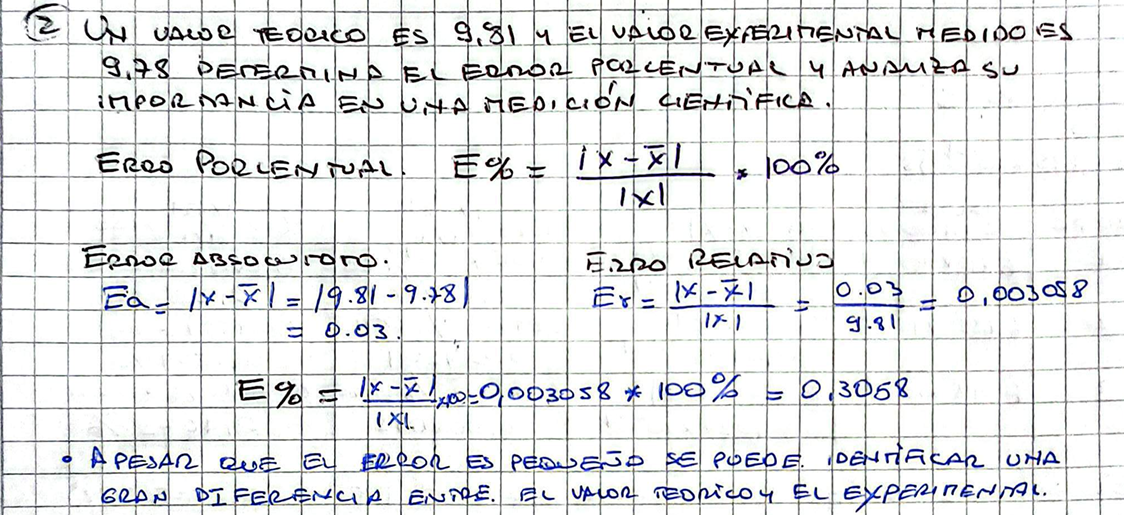 ② UN VALOR TEORICO ES 9,81 Y EL VALOR EXPERIMENTAL MEDIDO ES
9,78 DETERMINA EL ERROR PORCENTUAL Y ANALIZA SU
IMPORTANCIA EN UNA MEDICIÓN CIENTÍFICA.
ERRO PORCENTUAL. E% = |x - x̄| / |x| * 100%
ERROR ABSOLUTO. ERRO RELATIVO
Ea = |x - x̄| = |9.81 - 9.78| Er = |x - x̄| / |x| = 0.03 / 9.81 = 0,003058
= 0.03.
E% = |x - x̄| / |x|. *100 = 0,003058 * 100% = 0,3058
• APESAR QUE EL ERROR ES PEQUEÑO SE PUEDE. IDENTIFICAR UNA
GRAN DIFERENCIA ENTRE. EL VALOR TEORICO Y EL EXPERIMENTAL.